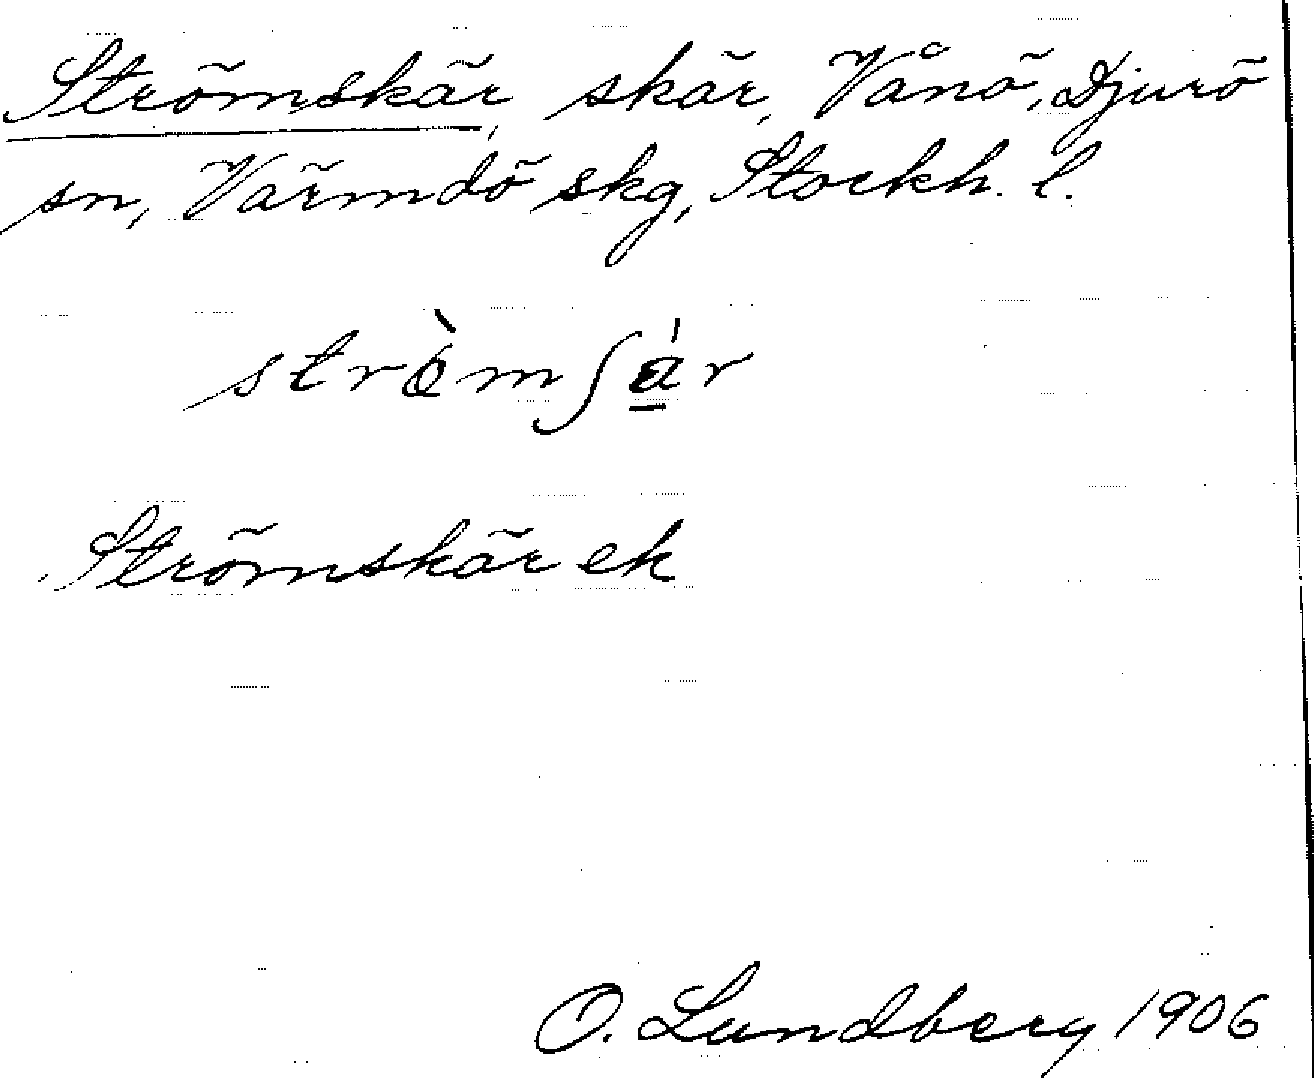 Strömskär, skär, Vånö, Djurö
sn, Värmdö skg, Stockh. l.
strö̀mʃä́r
Strömskär ek
O. Lundberg 1906